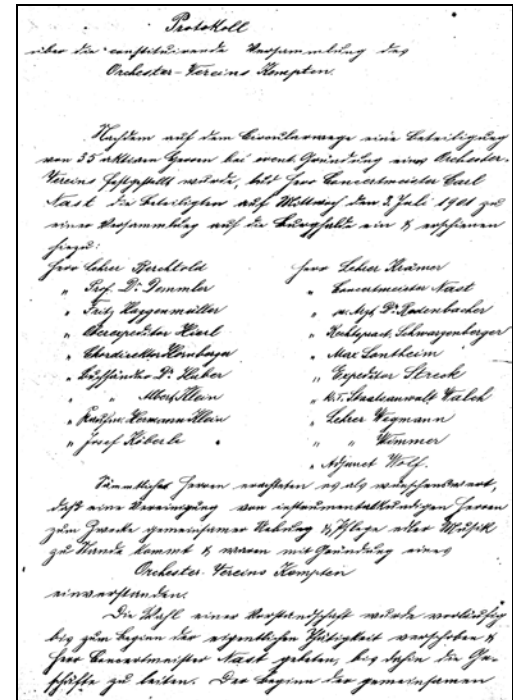 Protokoll
über die constituirende Versammlung des
Orchester-Vereins Kempten.
Nachdem auf dem Circularwege eine Beteiligung
von 35 aktiven Herrn bei event. Gründung eines Orchester-
Vereins festgestellt wurde, lud Herr Concertmeister Carl
Nast die Beteiligten auf Mittwoch den 3. Juli 1901 zu
einer Versammlung auf die Burghalde ein & erschienen
hiezu:
Herr Lehrer Berchtold
" Prof. Dr. Demmler
" Fritz Haggenmüller
" Oberexpeditor Hierl
" Chordirektor Hornberger
" Buchhändler D. Huber
" " Albert Klein
" Kaufm. Hermann Klein
" Josef Köberle
Herr Lehrer Krämer
" Concertmeister Nast
" Dr. Radenbacher
" Rechtspract. Schwarzenberger
" Max Sontheim
" Expeditor Streck
" k. Staatsanwalt Walch
" Lehrer Wegmann
" " Wimmer
" Adjunct Wolf.
Sämmtliche Herren erachteten es als wünschenswert,
daß eine Vereinigung von instrumentalkundigen Herren
zum Zwecke gemeinsamer Uebung & Pflege edler Musik
zu Stande kommt & waren mit Gründung eines
Orchester-Vereins Kempten
einverstanden.
Die Wahl einer Vorstandschaft wurde vorläufig
bis zum Beginn der eigentlichen Thätigkeit verschoben &
Herr Concertmeister Nast gebeten, bis dahin die Ge-
schäfte zu leiten. Der Beginn der gemeinsamen